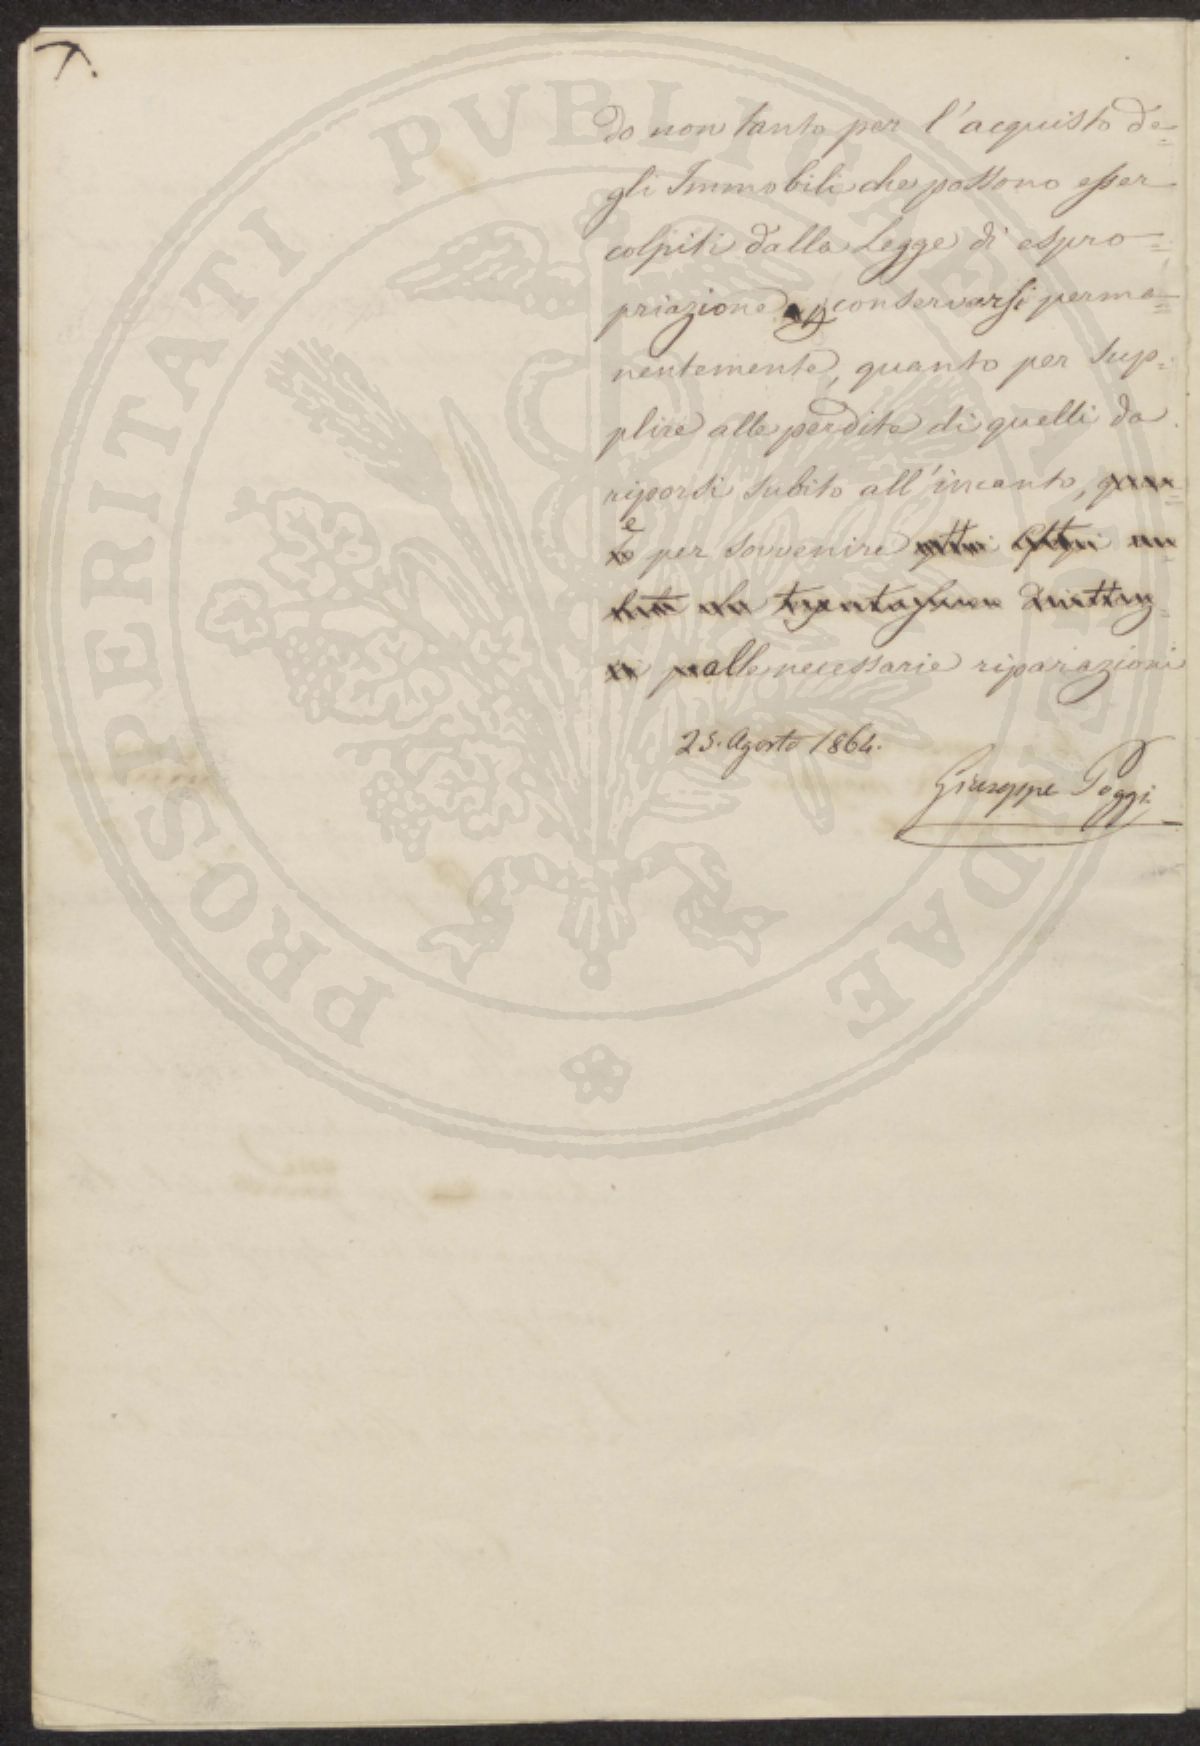 7.
do non tanto per l'acquisto de=
gli Immobili che possono esser
colpiti dalla Legge di espro=
priazione e conservarsi perma=
nentemente, quanto per sup=
plire alle perdite di quelli da
riporsi subito all'incanto,
e per sovvenire
alle necessarie riparazioni
25. Agosto 1864.
Giuseppe Poggi
PROSPERITATI PVBLICAE AVGENDAE